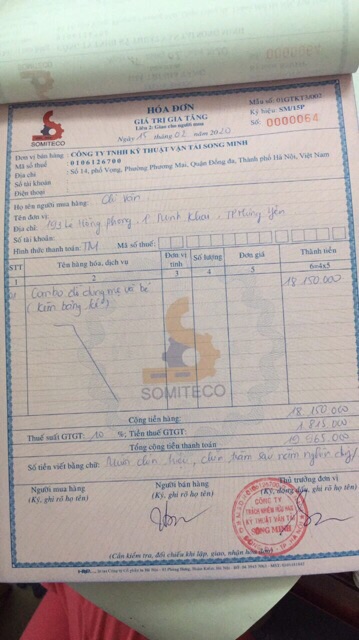 HÓA ĐƠN
GIÁ TRỊ GIA TĂNG
Liên 2: Giao cho người mua
Ngày 15 tháng 02 năm 2020
Mẫu số: 01GTKT3/002
Ký hiệu SM/15P
Số: 0000064
SOMITECO
Đơn vị bán hàng: CÔNG TY TNHH KỸ THUẬT VẬN TẢI SONG MINH
Mã số thuế: 0106126700
Địa chỉ: Số 14, phố Vọng, Phường Phương Mai, Quận Đống đa, Thành phố Hà Nội, Việt Nam
Số tài khoản
Điện thoại
Họ tên người mua hàng: Chị Vân
Tên đơn vị:
Địa chỉ: Lê Hồng phong, P Minh Khai, TP Hưng Yên
Số tài khoản:
Hình thức thanh toán: TM Mã số thuế:
STT Tên hàng hóa, dịch vụ Đơn vị tính Số lượng Đơn giá Thành tiền
1 2 3 4 5 6=4x5
01 Combo đồ dùng mẹ và bé 18 150 000
(Kèm bảng kê)
SOMITECO
Cộng tiền hàng: 18 150 000
Thuế suất GTGT: 10 %, Tiền thuế GTGT: 1 815 000
Tổng cộng tiền thanh toán 19 965 000
Số tiền viết bằng chữ: Mười chín triệu, chín trăm sáu năm nghìn đồng/
Người mua hàng Người bán hàng Thủ trưởng đơn vị
(Ký, ghi rõ họ tên) (Ký, ghi rõ họ tên) (Ký, đóng dấu, ghi rõ họ tên)
CÔNG TY
TRÁCH NHIỆM HỮU HẠN
KỸ THUẬT VẬN TẢI
SONG MINH
(Cần kiểm tra, đối chiếu khi lập, giao, nhận hóa đơn)